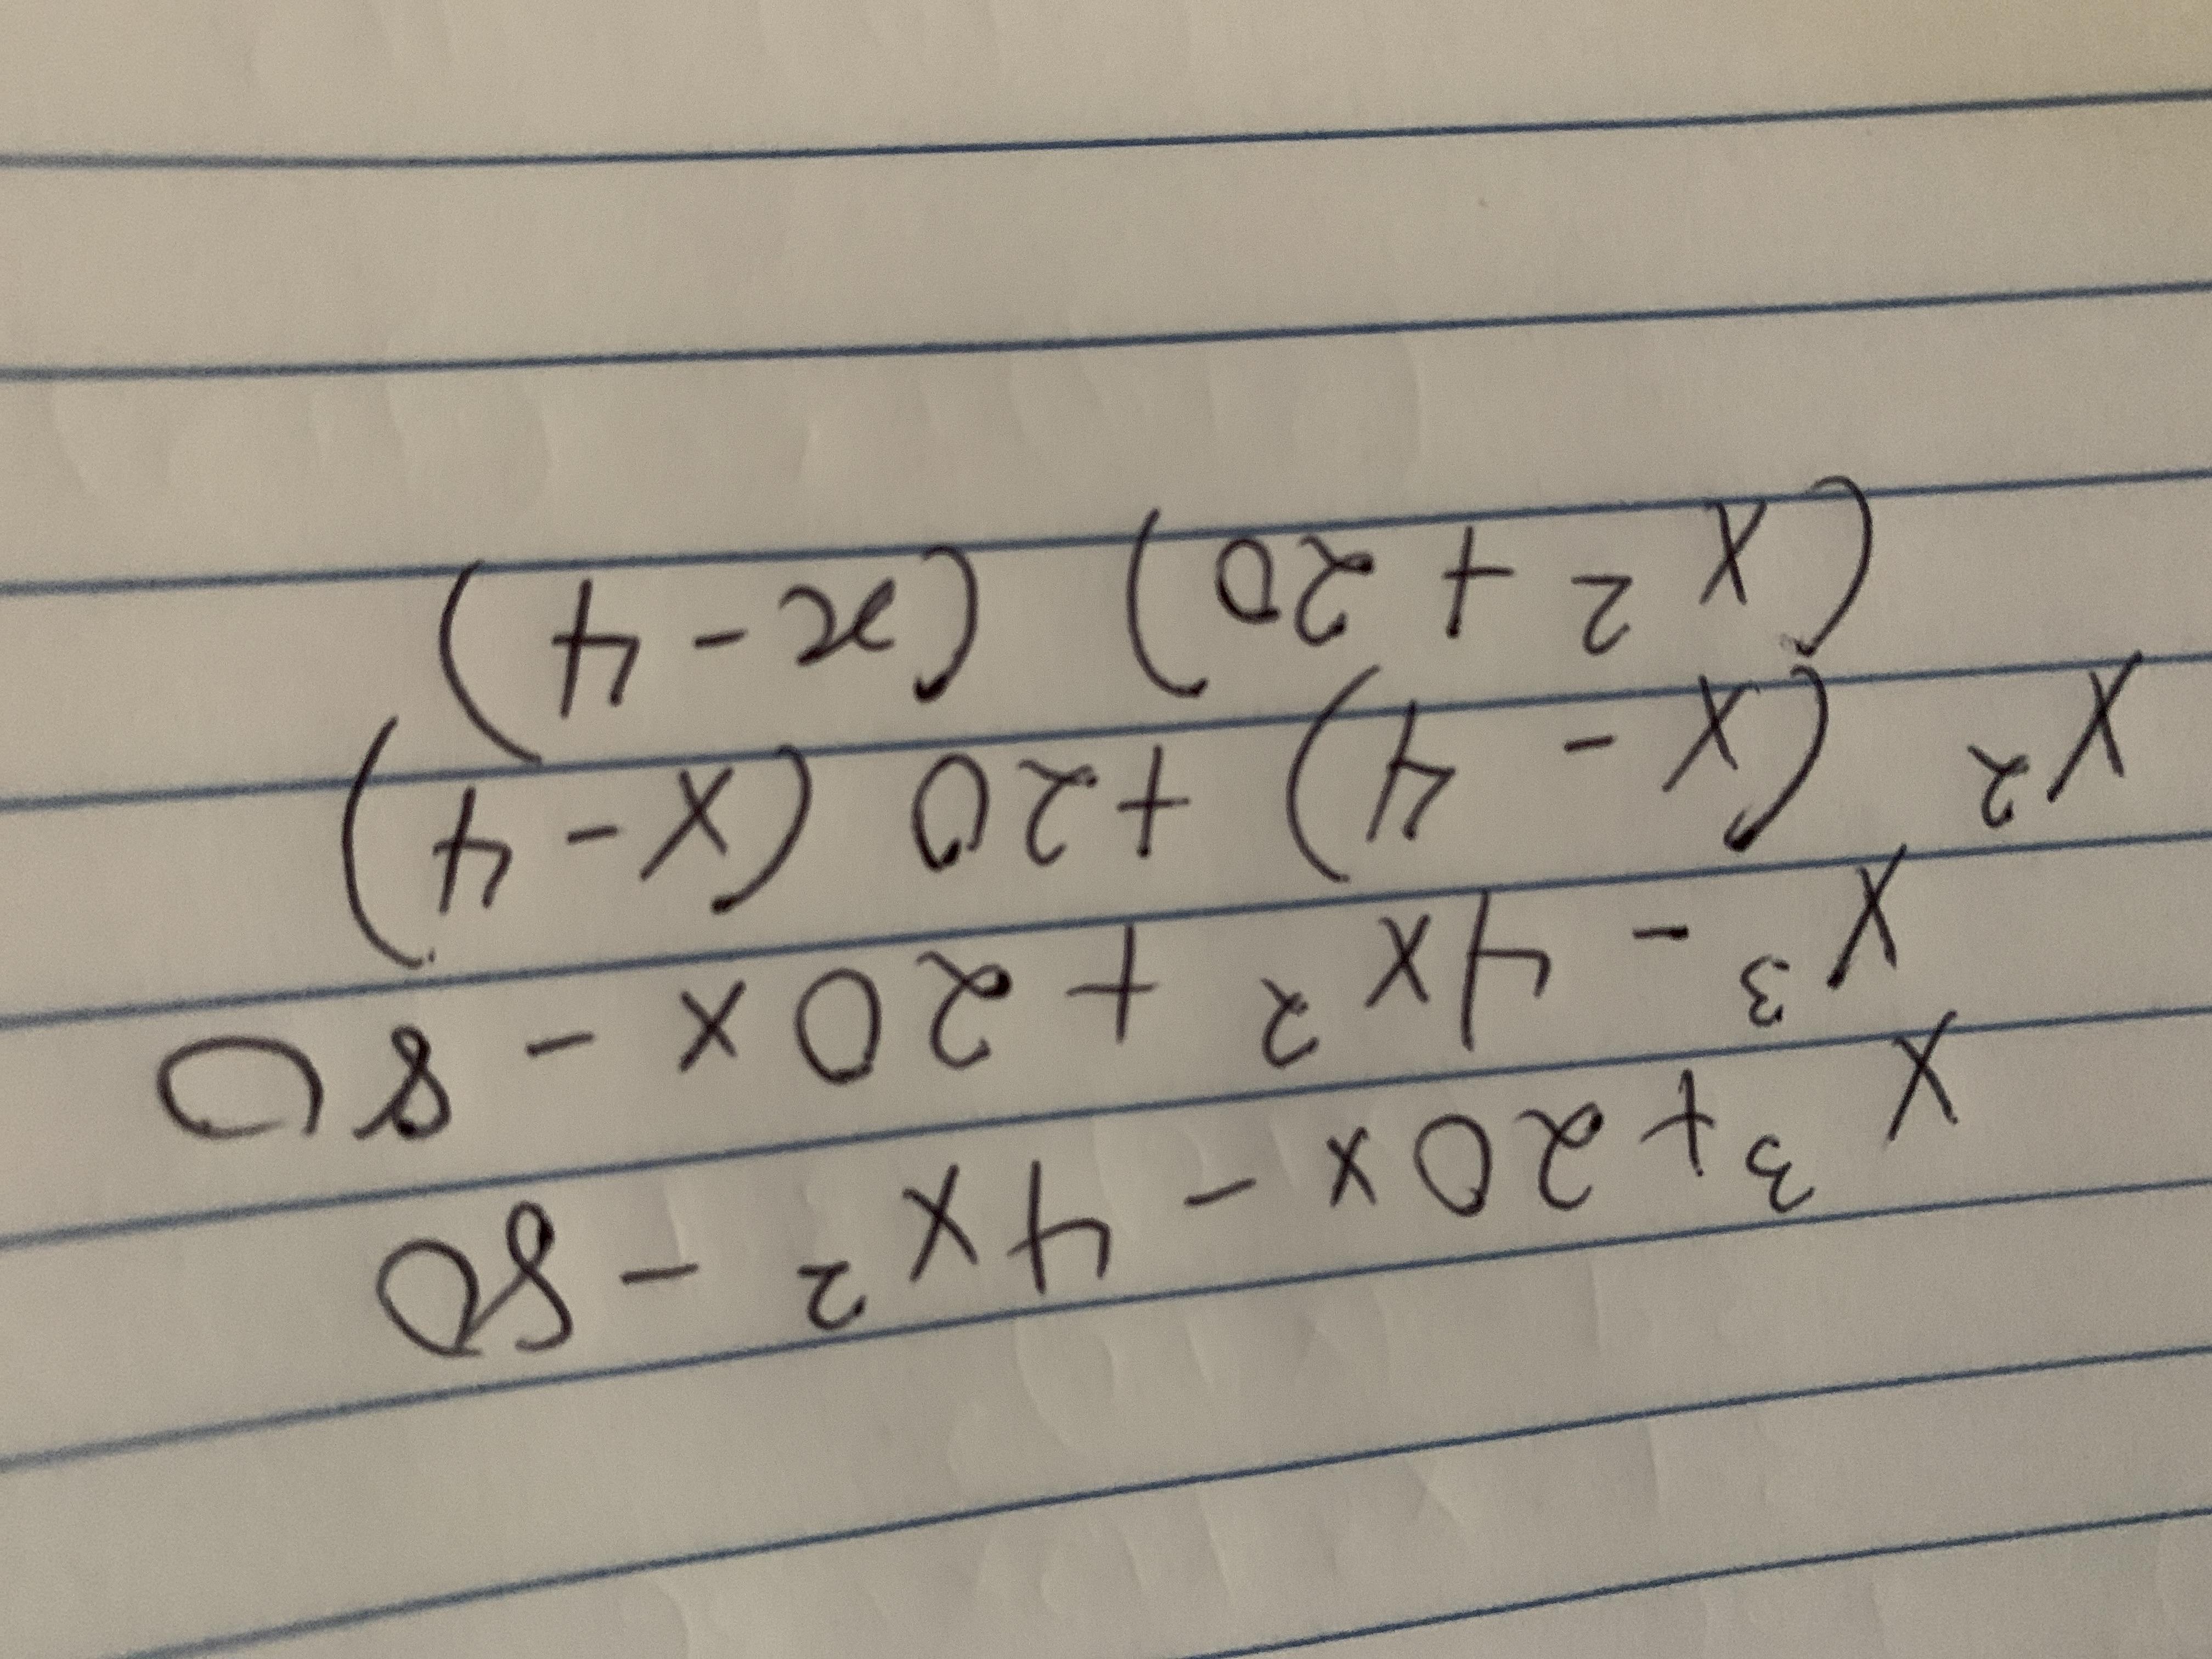 x³ + 20x - 4x² - 80
x³ - 4x² + 20x - 80
x² (x - 4) + 20 (x - 4)
(x² + 20) (x - 4)